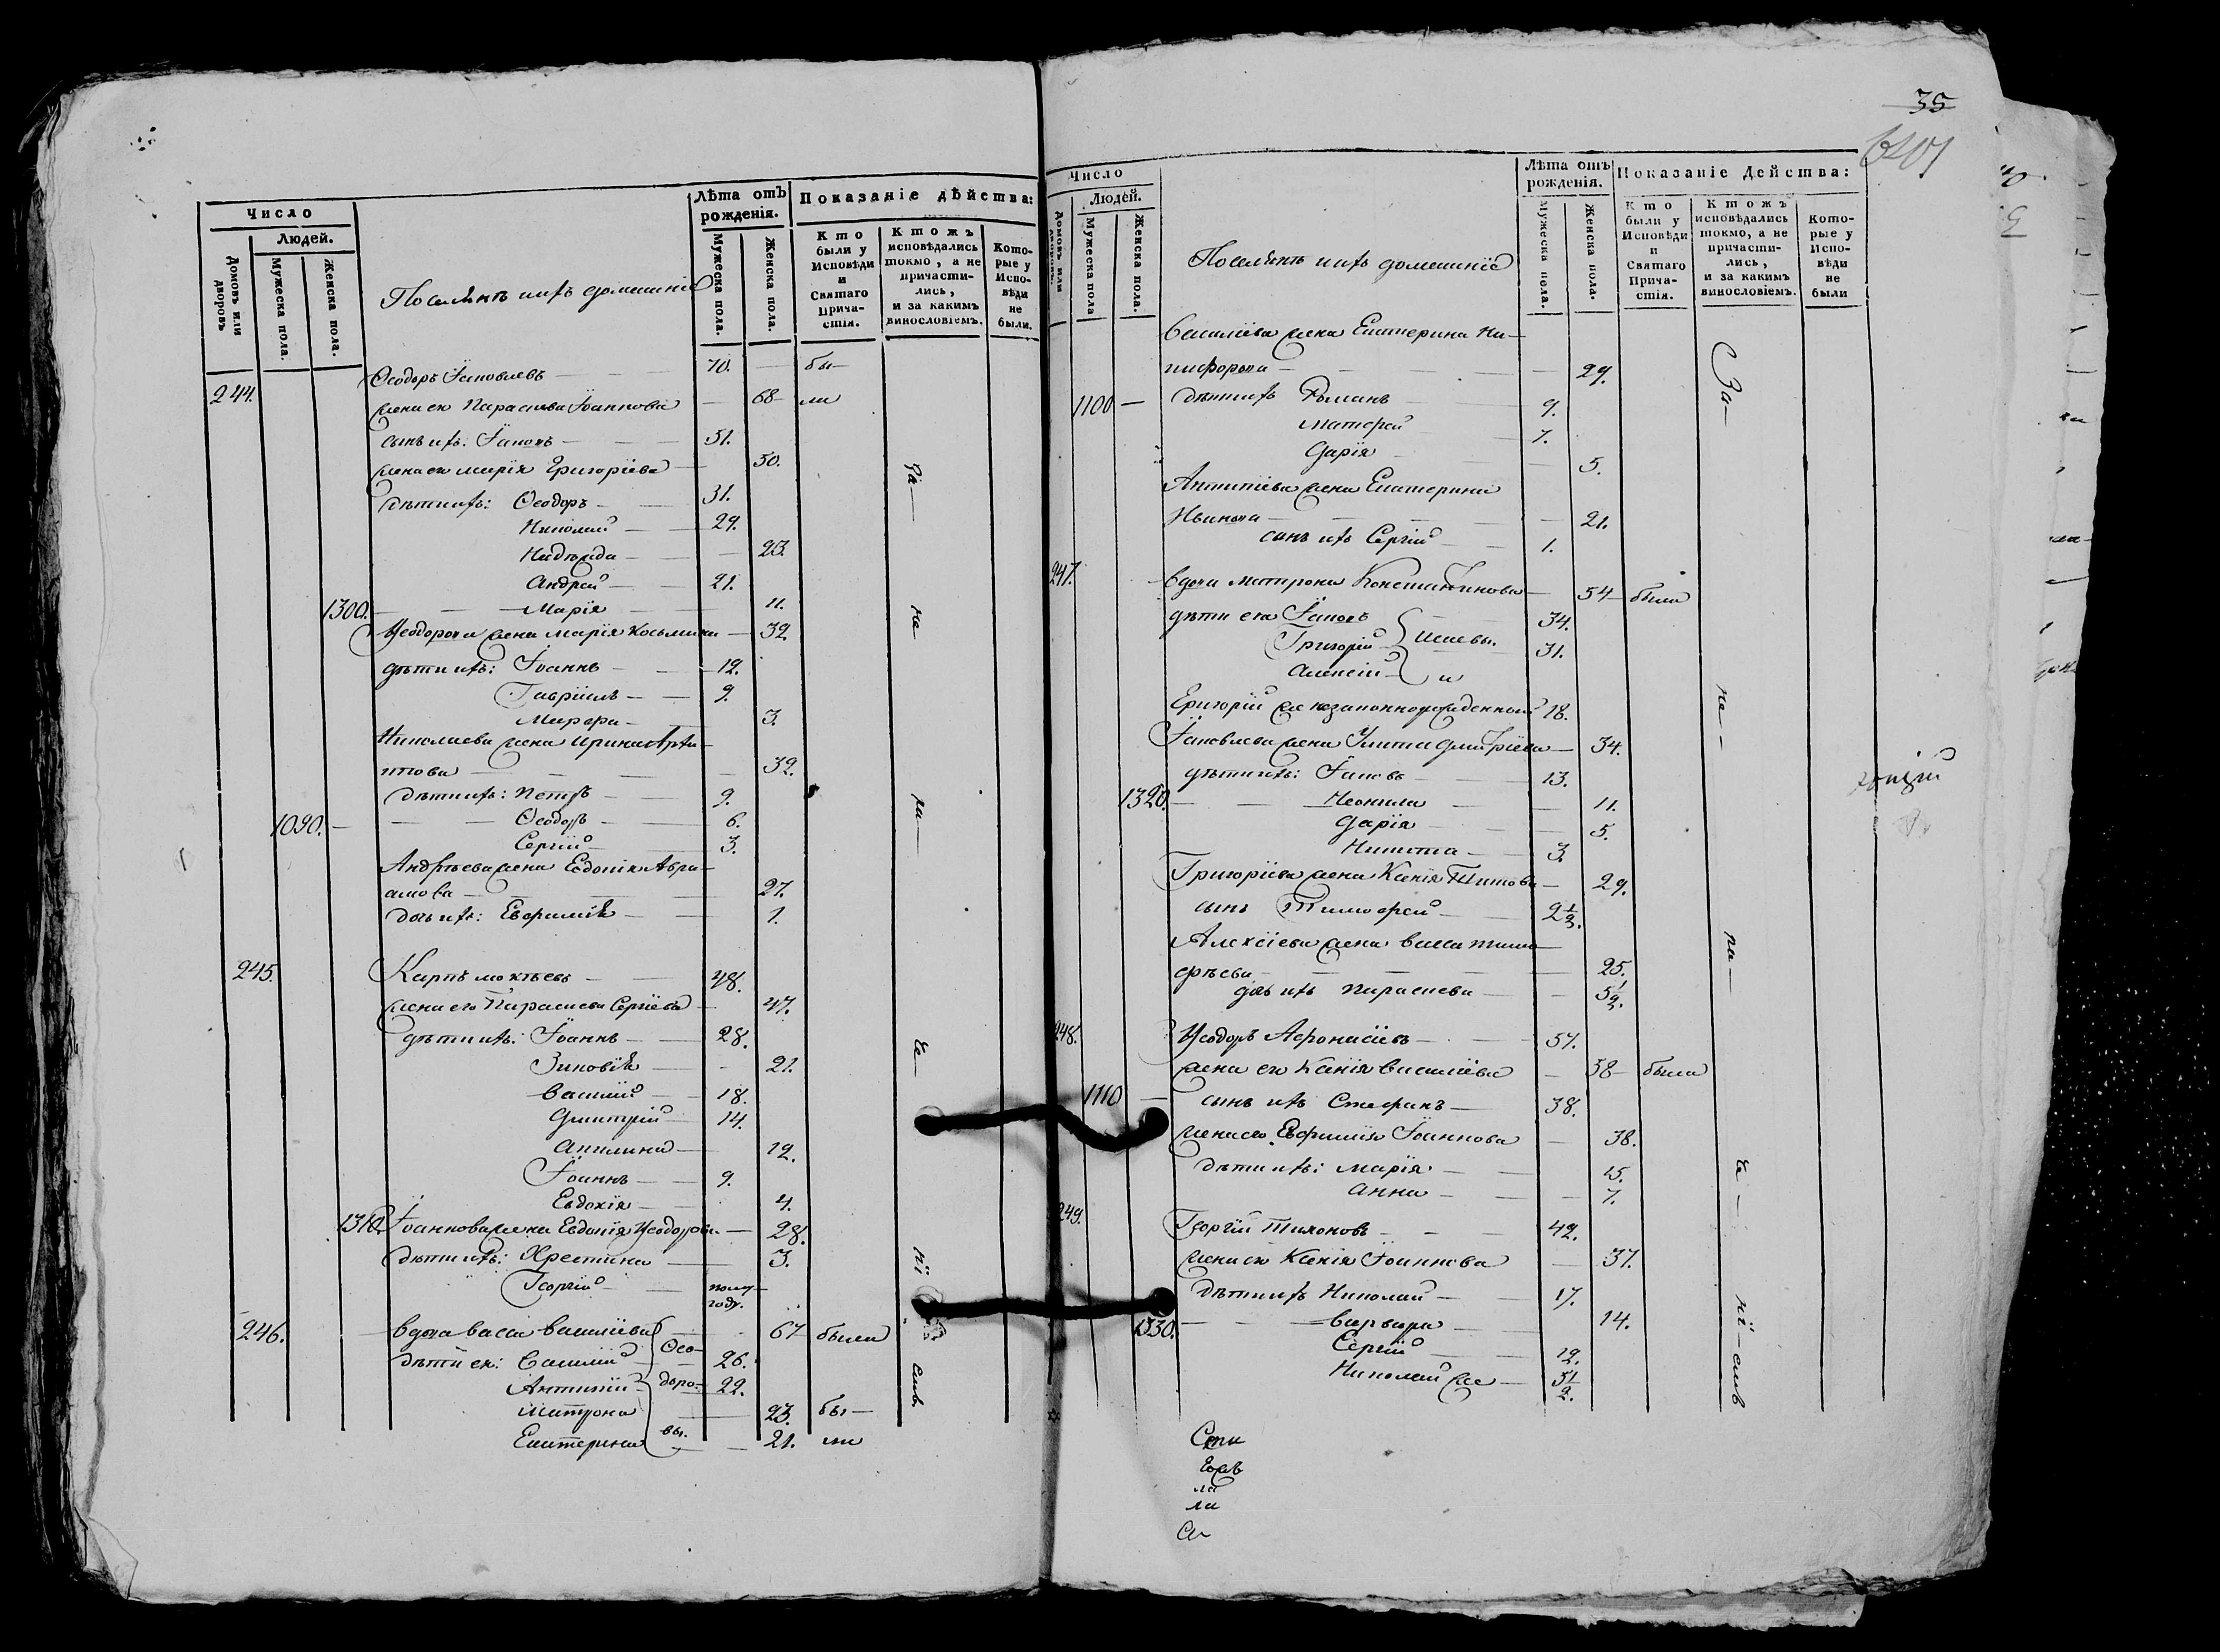 Число
Людей.
Домовъ или дворовъ
Мужеска пола.
Женска пола.
Поселянъ ихъ домашніе
Лѣта отъ рожденія.
Мужеска пола.
Женска пола.
Показаніе дѣйства:
Кто были у Исповѣди и Святаго Прича-стія.
Ктожъ исповѣдались токмо, а не причасти-лись, и за какимъ винословіемъ.
Кото-рые у Испо-вѣди не были.
244. Ѳеодоръ Іаковлевъ — 70. — бы-
жена ег Параскева Іоаннова — 68 — ли
сынъ ихъ: Іаковъ — 51.
жена ег Марія Григоріева — 50.
дѣти ихъ: Ѳеодоръ — 31.
Николай — 29.
Надежда — 23.
Андрей — 21.
1300. — Марія — 11.
Ѳеодорова жена Марія Косьмина — 32.
дѣти ихъ: Іоаннъ — 12.
Гавріилъ — 9.
Марфа — 3.
Николаева жена Ирина
пова — 32.
дѣти ихъ: Петръ — 9.
1090. — Ѳеодоръ — 6.
Сергій — 3.
Андрѣева жена Евдокія Авра-
амова — 27.
дочь ихъ: Евфимія — 1.
245. Карпъ Мокѣевъ — 48.
жена его Параскева Сергіева — 47.
дѣти ихъ: Іоаннъ — 28.
Зиновія — 21.
Василій — 18.
Дмитрій — 14.
Акилина — 12.
Іоаннъ — 9.
Евдокія — 4.
1310. Іоаннова жена Евдокія Ѳеодорова — 28.
дѣти ихъ: Христина — 3.
Георгій — полу-
году.
246. вдова Васса Василіева — 67 — были
дѣти ея: Василій — Ѳео- 26.
Антипій — доро- 22.
Матрона — 23. бы-
Екатерина — вы. — 21. ли
за
не
ра
че
ні
емъ
35
Число
Людей.
Домовъ или дворовъ.
Мужеска пола
Женска пола.
Поселянъ ихъ домашніе
Лѣта отъ рожденія.
Мужеска пола.
Женска пола.
Показаніе Действа:
Кто были у Исповѣди и Святаго Прича-стія.
Ктожъ исповѣдались токмо, а не причасти-лись, и за какимъ винословіемъ.
Кото-рые у Испо-вѣди не были
Василіева жена Екатерина Ни-
кифорова — 29.
1100 — дѣти ихъ Романъ — 9.
Матфей — 7.
Дарія — 5.
Антипіева жена Екатерина
Иванова — 21.
сынъ ихъ Сергій — 1.
247. вдова Матрона Константинова — 54 — была
дѣти ея Іаковъ — 34.
Григорій — Исаевы. 31.
Алексій — и
Григорій же незаконнорожденный 18.
Іаковлева жена Улита Дмитріева — 34.
дѣти ихъ: Іаковъ — 13.
1320. — Неонила — 11.
Дарія — 5.
Никита — 3.
Григоріева жена Ксенія Титова — 29.
сынъ Тимофей — 2 1/2.
Алексіева жена Васса Тимо-
фѣева — 25.
дочь ихъ Параскева — 5 1/2.
248. Ѳеодоръ Афонасіевъ — 57.
жена ег Ксенія Василіева — 58 — была
1110 — сынъ ихъ Стефанъ — 38.
жена ег Евфимія Іоаннова — 38.
дѣти ихъ: Марія — 15.
Анна — 7.
249. Георгій Тихоновъ — 42.
жена ег Ксенія Іоаннова — 37.
дѣти ихъ Николай — 17.
1330. — Варвара — 14.
Сергій — 12.
Николай же — 5 1/2.
За-
не-
ра-
че-
ні-емъ